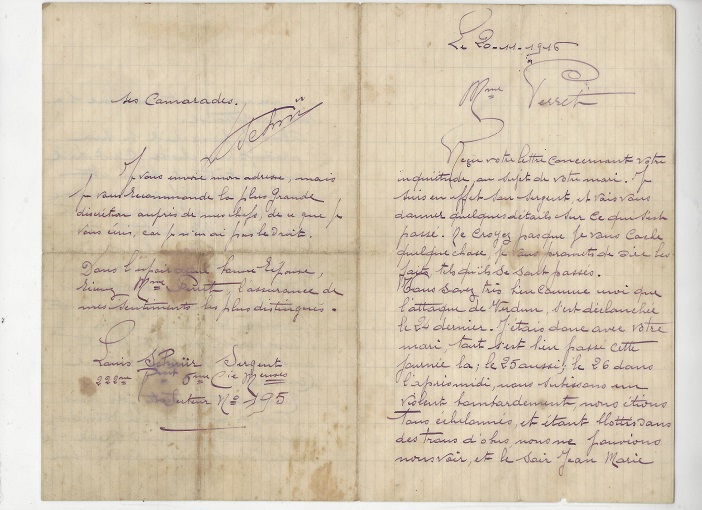 Le 20-11-1916
Mme Perret
Reçu votre lettre concernant votre
inquiétude au sujet de votre mari. Je
suis en effet son sergent, et vais vous
donner quelques détails sur ce qui s'est
passé. Ne croyez pas que je vous cache
quelque chose, je vous promets de dire les
faits tels qu'ils se sont passés.
Vous savez très bien comme moi que
l'attaque de Verdun, s'est déclanchée
le 24 dernier. J'étais donc avec votre
mari, tout s'est bien passé cette
journée là; le 25 aussi, le 26 dans
l'après midi, nous subissons un
violent bombardement nous étions
tous ébêlonnés, et étant blottis dans
des trous d'obus nous ne pouvions
nous voir, et le soir Jean Marie
ses Camarades.
Je vous envoie mon adresse, mais
je vous recommande la plus grande
discrétion auprès de mes chefs, de ce que je
vous écris, car je n'en ai pas le droit.
Dans l'espoir d'une bonne Réponse,
Mme Perret l'assurance de
mes sentiments les plus distingués.
Louis Sergent
222me 6me Cie
Secteur No 195